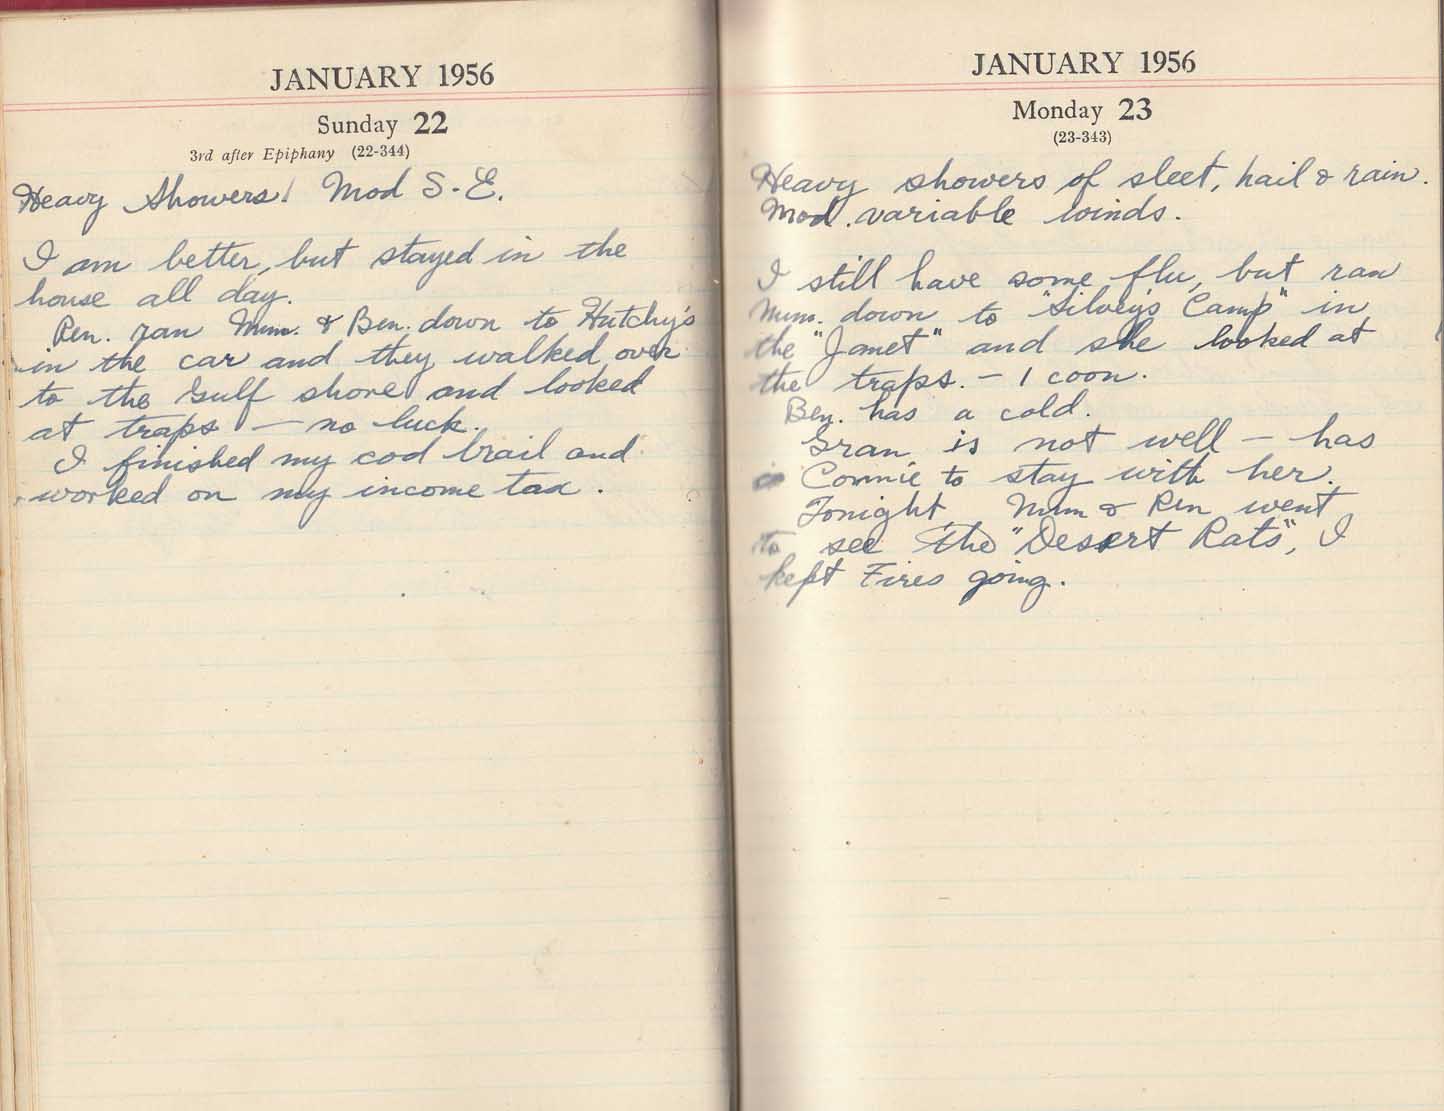 JANUARY 1956
Sunday 22
3rd after Epiphany (22-344)
Heavy Showers! Mod S-E.
I am better, but stayed in the
house all day.
Ren. ran Mum. & Ben. down to Hutchy's
in the car and they walked over
to the Gulf shore and looked
at traps — no luck.
I finished my cod brail and
worked on my income tax.
JANUARY 1956
Monday 23
(23-343)
Heavy showers of sleet, hail & rain.
Mod. variable winds.
I still have some flu, but ran
Mum. down to "Silvey's Camp" in
the "Janet" and she looked at
the traps. — 1 coon.
Ben. has a cold.
Gran is not well — has
Connie to stay with her.
Tonight Mum & Ren went
to see the "Desert Rats", I
kept Fires going.